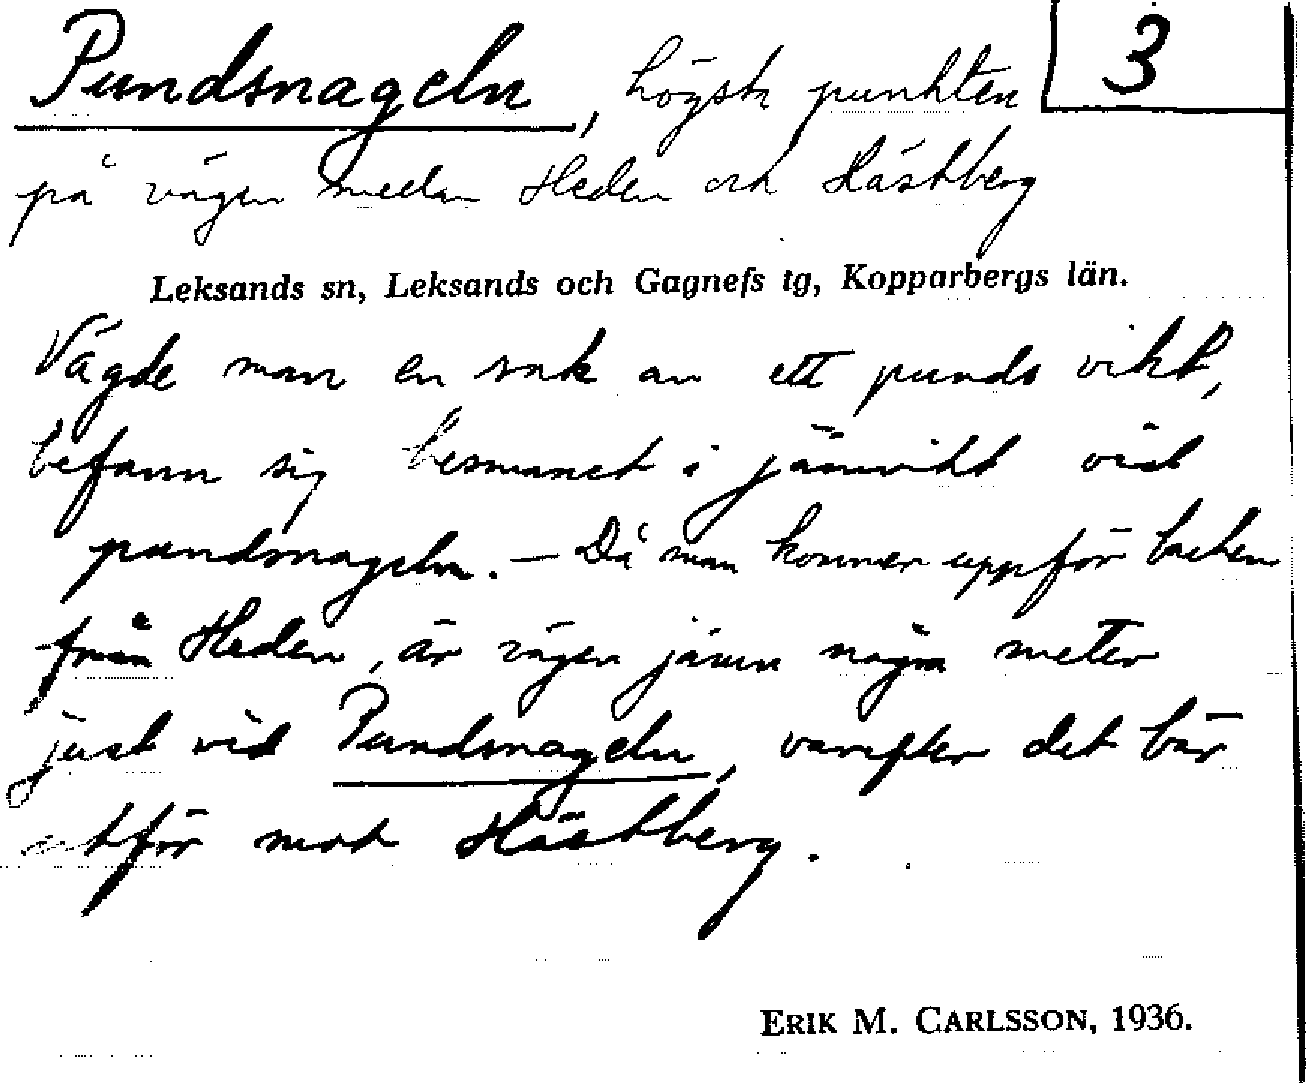 Pundsnageln, högsta punkten 3
på vägen mellan Heden och Hästberg
Leksands sn, Leksands och Gagnefs tg, Kopparbergs län.
Vägde man en sak av ett punds vikt,
befann sig besmanet i jämvikt vid
pundsnageln. – Då man kommer uppför backen
från Heden, är vägen jämn några meter
just vid Pundsnageln, varefter det bär
utför mot Hästberg.
ERIK M. CARLSSON, 1936.